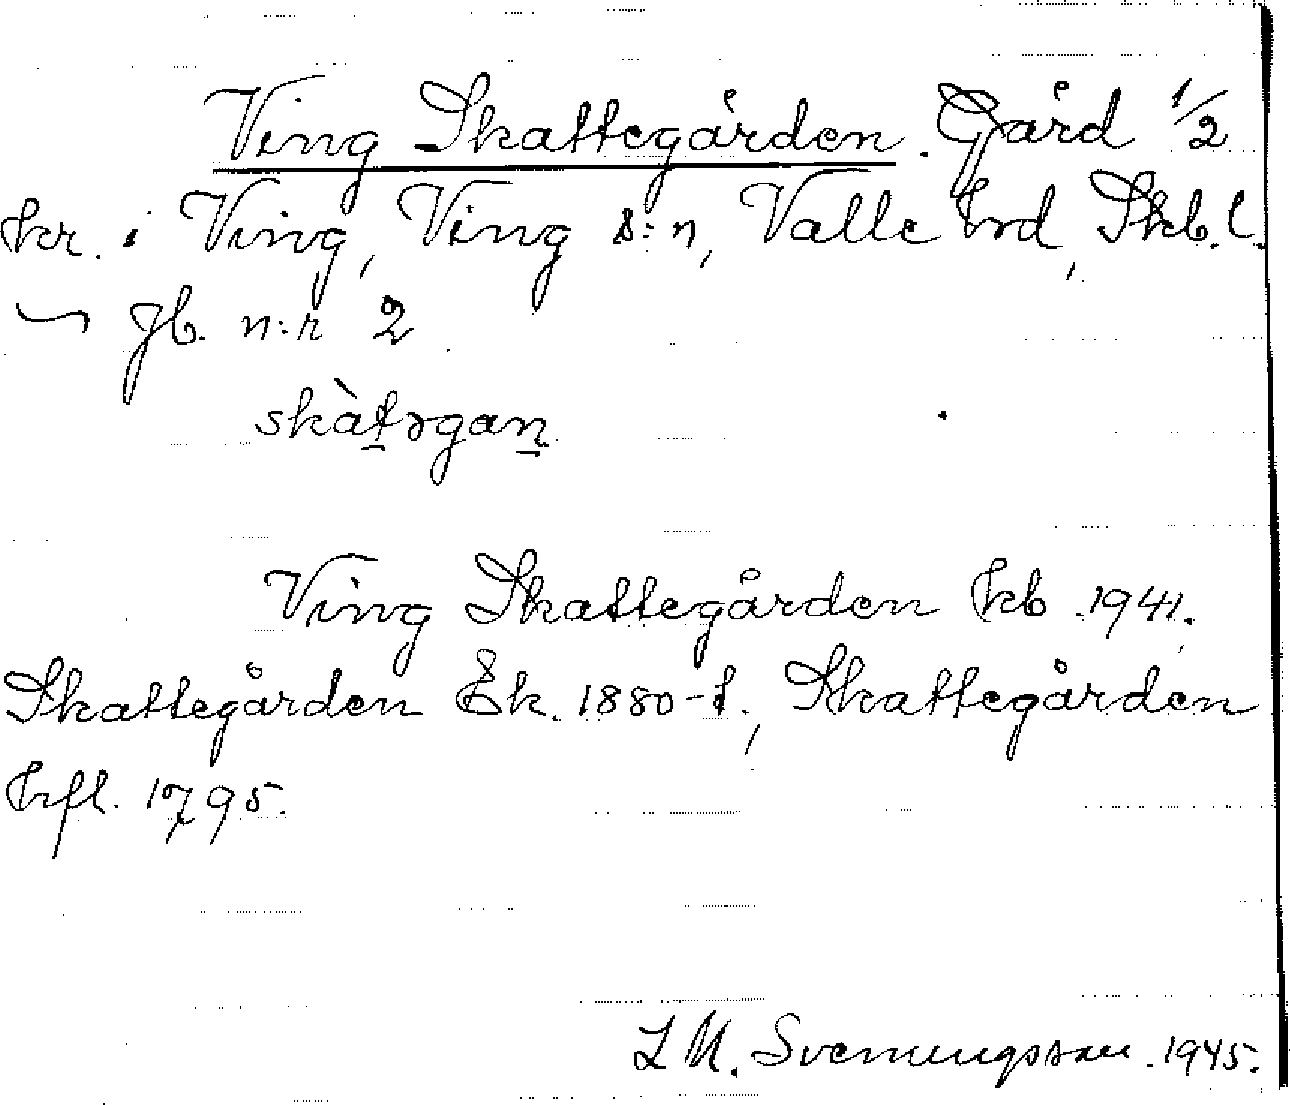 Ving Skattegården. Gård 1/2
kr. i Ving, Ving s:n, Valle hrd, Skb. l.
~ jb. n:r 2
skàt̲ǝgan̲
Ving Skattegården kb 1941.
Skattegården Ek. 1880-t., Skattegården
hfl. 1795.
L M. Svenungsson. 1945.